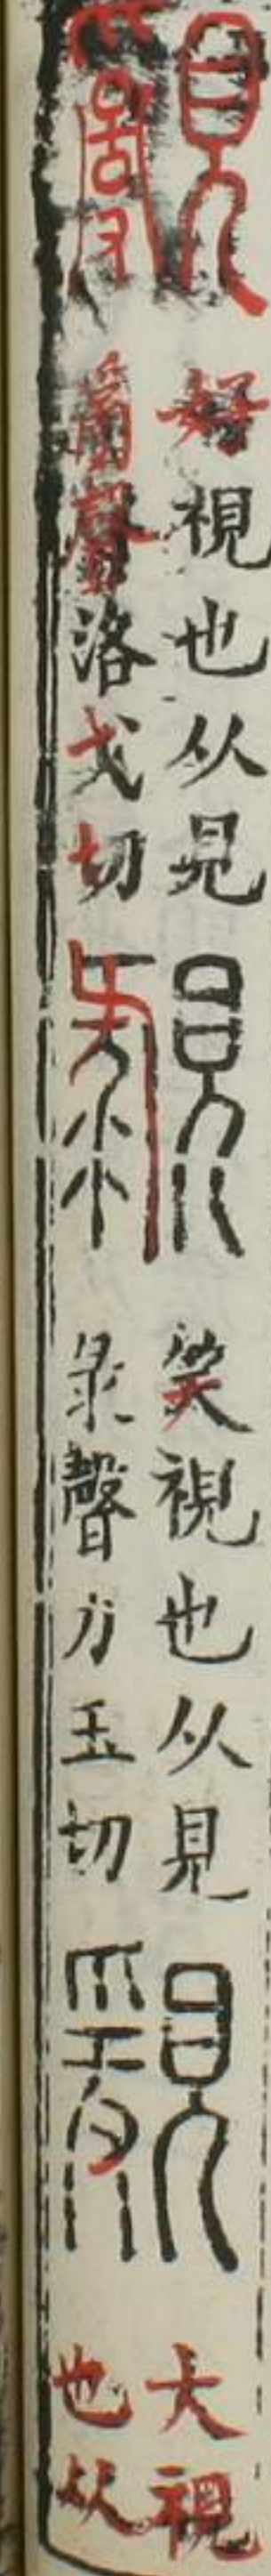 覶
好視也从見
𤔔聲洛戈切
䚄
笑視也从見
录聲力玉切
大視
也从